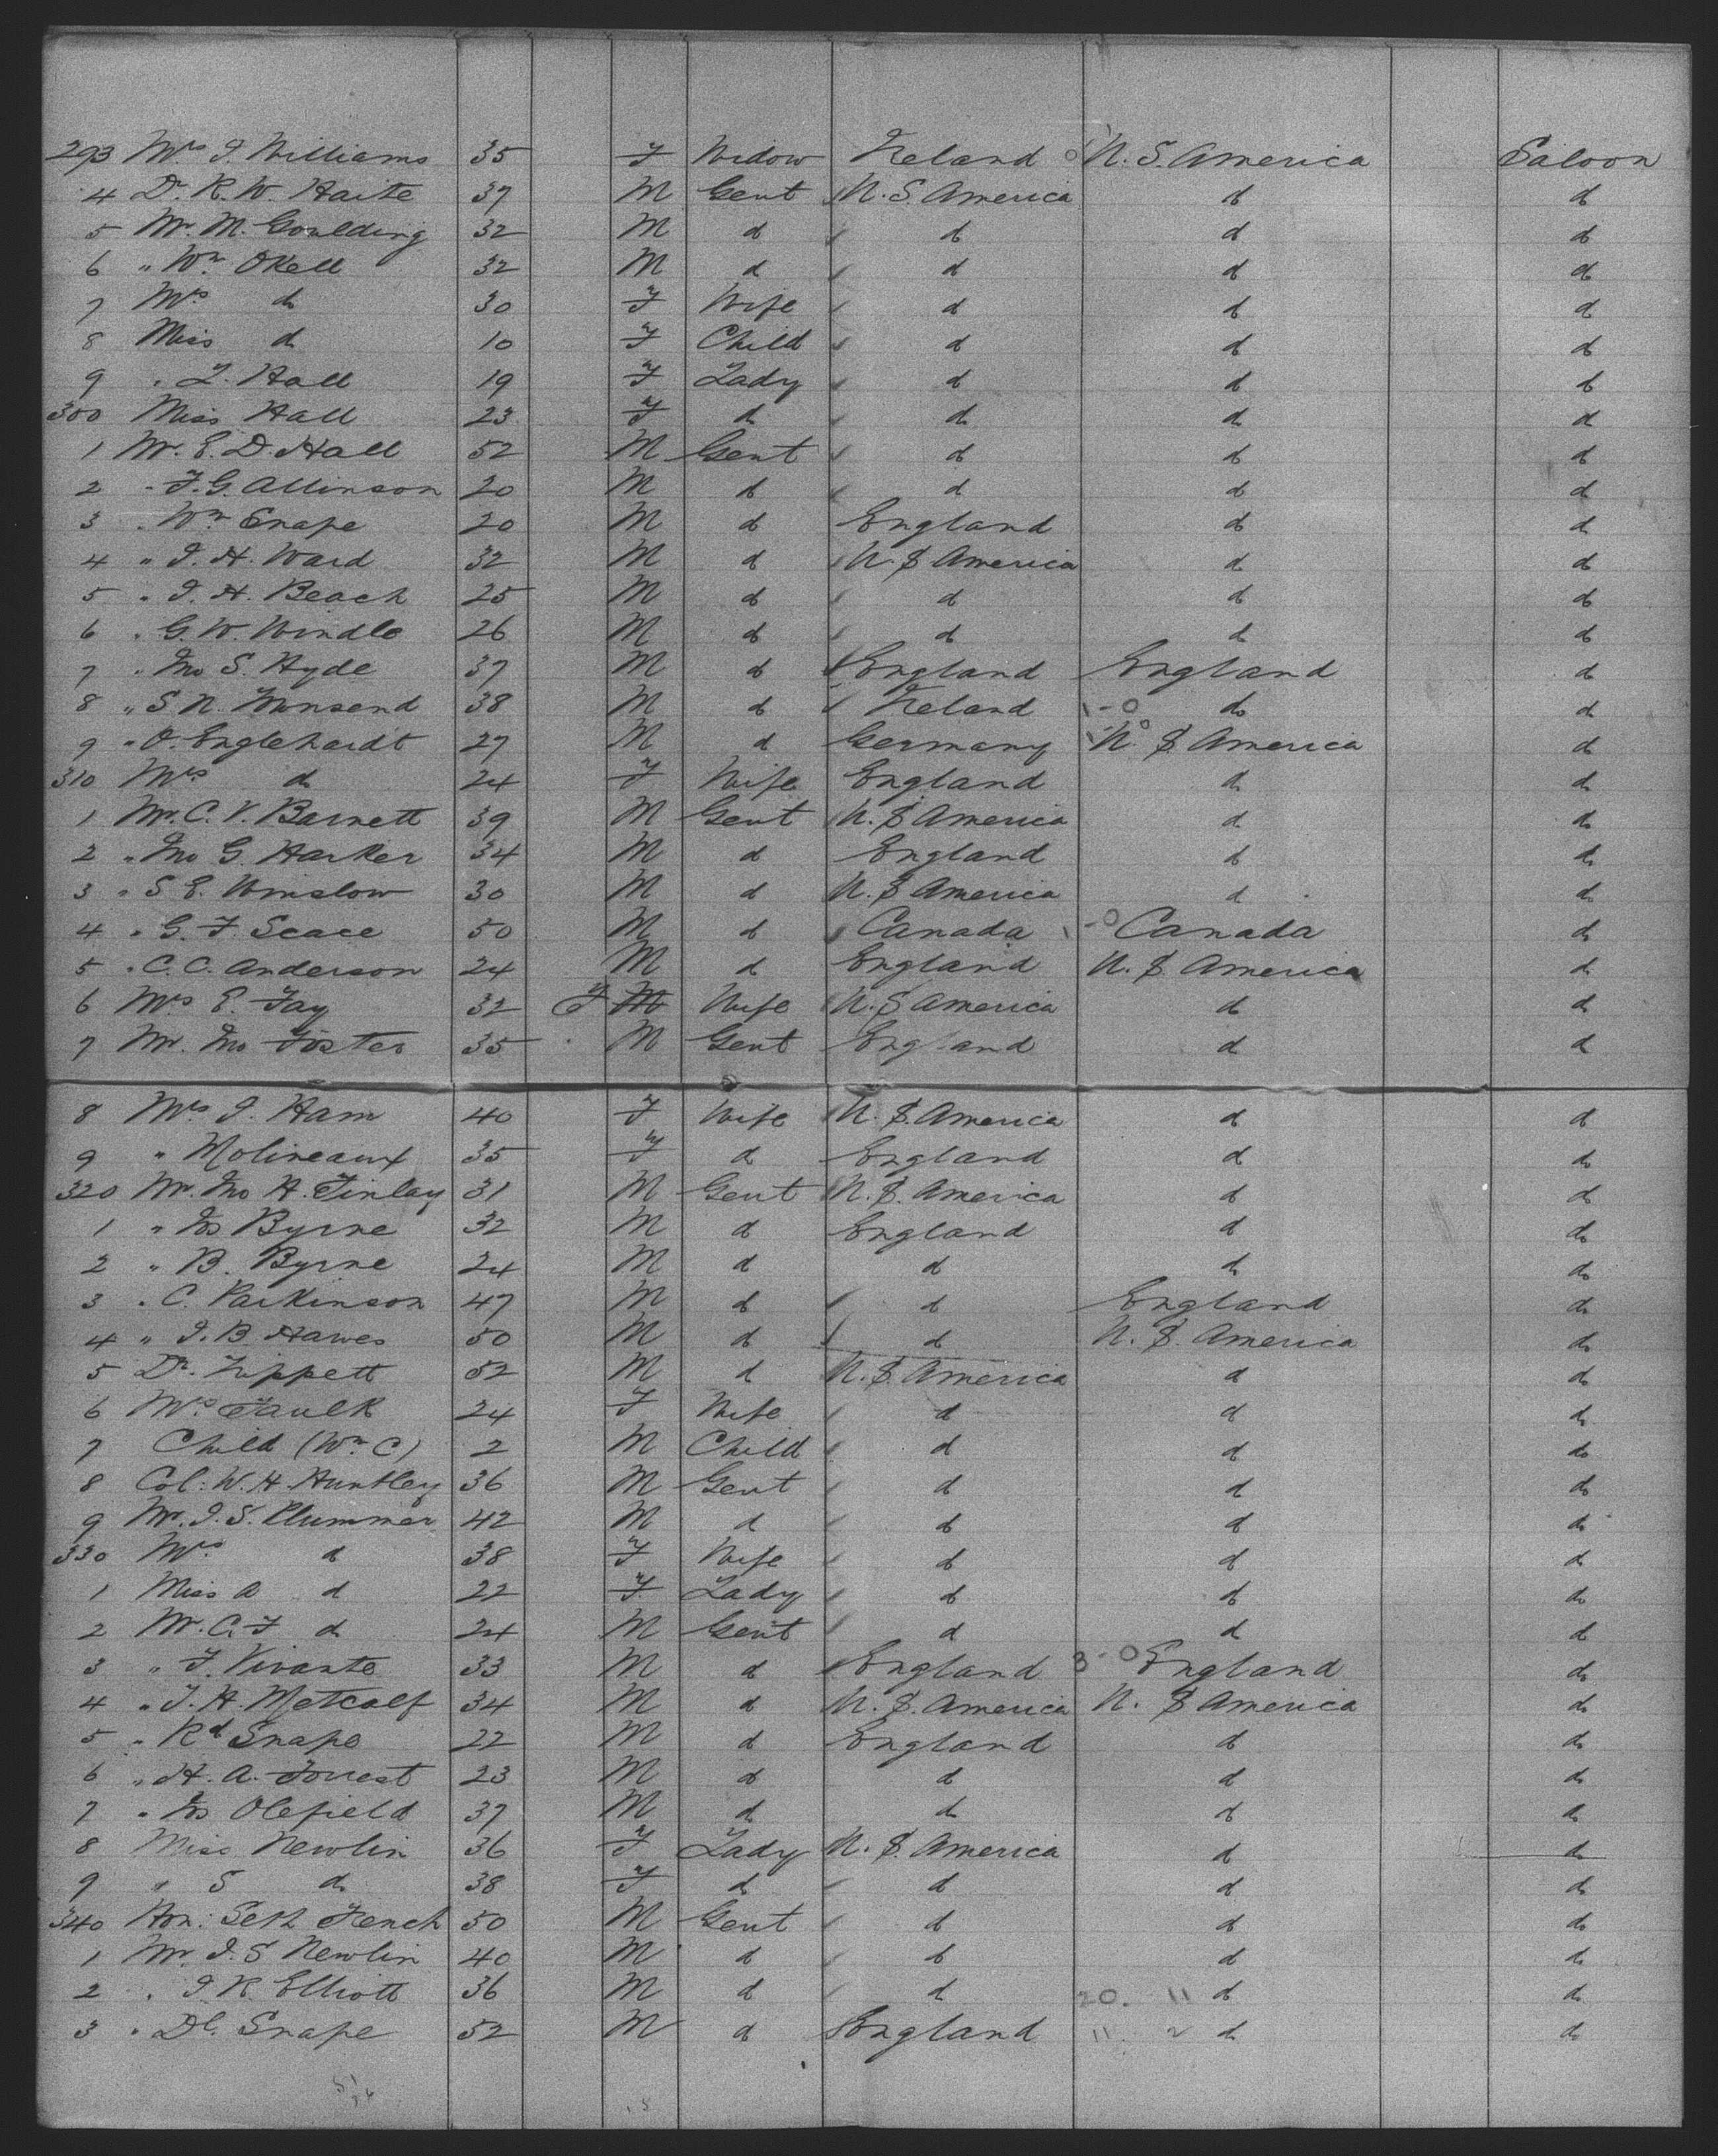 293 Mrs J. Williams 35 F Widow Ireland U. S. America Saloon
4 Dr. R. W. Haite 37 M Gent U. S. America d d
5 Mr. M. Goulding 32 M d d d d
6 " Wm Okell 32 M d d d d
7 Mrs do 30 F Wife d d d
8 Miss d 10 F Child d d d
9 " L. Hall 19 F Lady d d d
300 Miss Hall 23 F d d d d
1 Mr. E. D. Hall 52 M Gent d d d
2 " F. G. Allinson 20 M d d d d
3 " Wm Snape 20 M d England d d
4 " J. H. Ward 32 M d U. S. America d d
5 " J. H. Beach 25 M d d d d
6 " G. W. Windle 26 M d d d d
7 " Jno S. Hyde 37 M d England England d
8 " S. N. Townsend 38 M d Ireland do d
9 " O. Englehardt 27 M d Germany U. S. America d
310 Mrs d 24 F Wife England d d
1 Mr. C. V. Barnett 39 M Gent U. S. America d do
2 " Jno G. Harker 34 M d England d do
3 " S. E. Winslow 30 M d U. S. America d do
4 " G. F. Scace 50 M d Canada Canada d
5 " C. C. Anderson 24 M d England U. S. America d
6 Mrs E. Fay 32 F M Wife U. S. America d d
7 Mr. Jno Foster 35 M Gent England d d
8 Mrs J. Ham 40 F Wife U. S. America d d
9 " Molineaux 35 F d England d do
320 Mr. Jno H. Finlay 31 M Gent U. S. America d do
1 " Jos Byrne 32 M d England d do
2 " B. Byrne 24 M d d d do
3 " C. Parkinson 47 M d d England do
4 " J. B. Hawes 50 M d d U. S. America do
5 Dr. Tippett 52 M d U. S. America d do
6 Mrs Faulk 24 F Wife d d do
7 Child (Wm C) 2 M Child d d do
8 Col: W. H. Huntley 36 M Gent d d do
9 Mr. J. S. Plummer 42 M d d d do
330 Mrs d 38 F Wife d d do
1 Miss A d 22 F Lady d d do
2 Mr. C. F d 24 M Gent d d do
3 " F. Vivante 33 M d England England do
4 " J. H. Metcalf 34 M d U. S. America U. S America do
5 " Rd Snape 22 M d England d do
6 " H. A. Forrest 23 M d d d do
7 " Jos Olefield 37 M d d d do
8 Miss Newlin 36 F Lady U. S. America d do
9 " S do 38 F d d d do
340 Hon: Seth French 50 M Gent d d do
1 Mr. J. S Newlin 40 M d d d do
2 " J. K. Elliott 36 M d d 20. 11 d do
3 " Dl. Snape 52 M d England 11. 2 d do